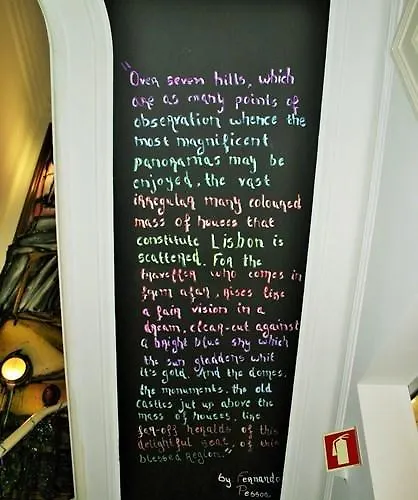 "Over seven hills, which
are as many points of
observation whence the
most magnificent
panoramas may be
enjoyed, the vast
irregular many coloured
mass of houses that
constitute Lisbon is
scattered. For the
traveller who comes in
from afar, rises like
a fair vision in a
dream, clear-cut against
a bright blue sky which
the sun gladdens whit
it's gold. And the domes,
the monuments, the old
castles jut up above the
mass of houses, like
far-off heralds of this
delightful seat, of this
blessed region."
by Fernando
Pessoa